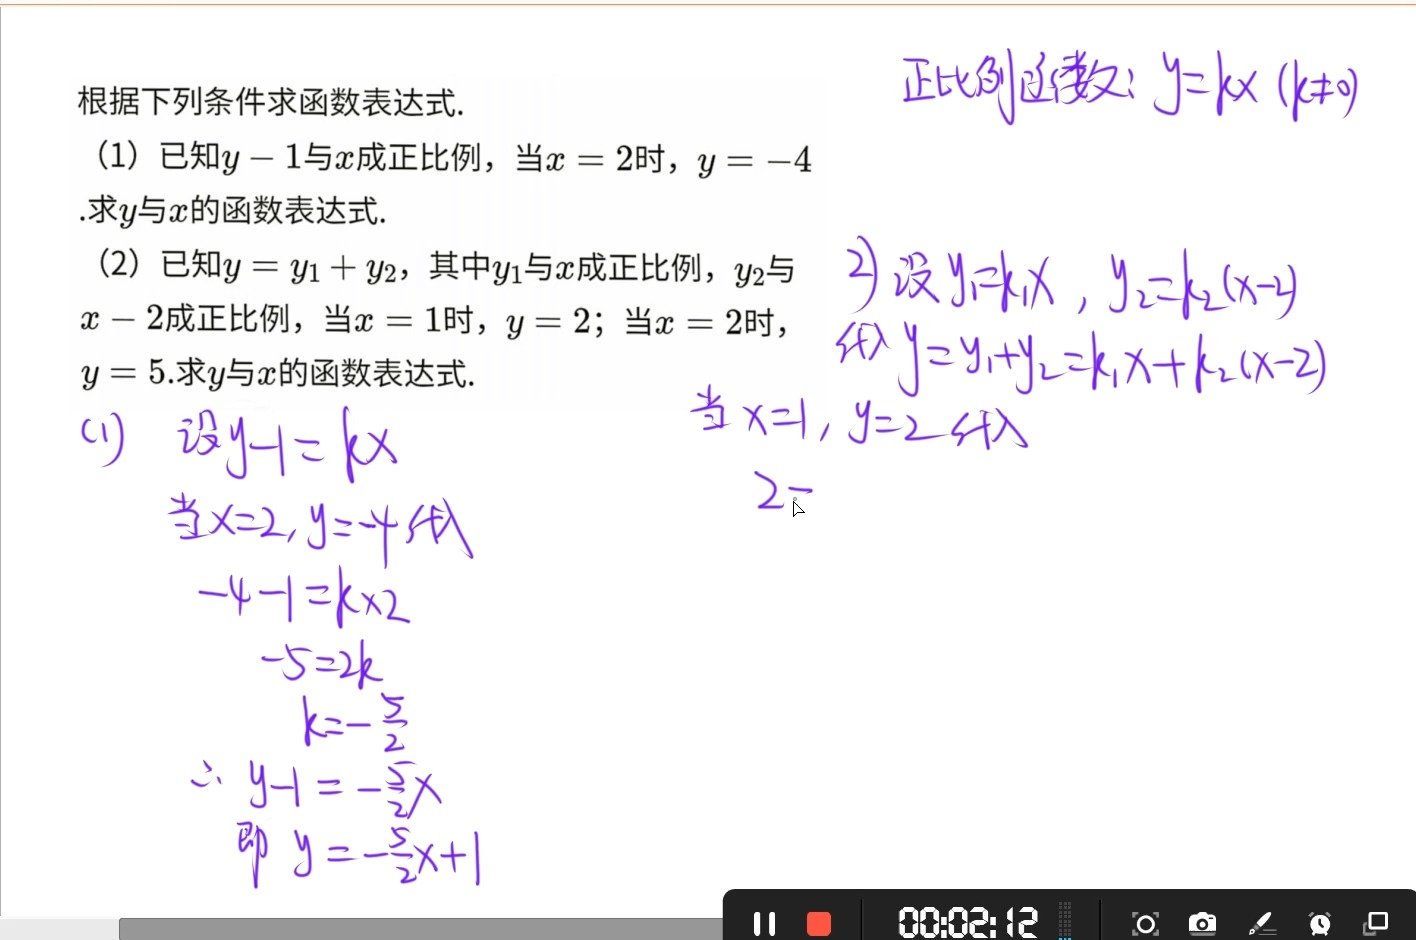 正比例函数：y=kx (k≠0)
根据下列条件求函数表达式.
（1）已知y－1与x成正比例，当x＝2时，y＝－4
.求y与x的函数表达式.
（2）已知y＝y₁＋y₂，其中y₁与x成正比例，y₂与
x－2成正比例，当x＝1时，y＝2；当x＝2时，
y＝5.求y与x的函数表达式.
(1) 设y-1=kx
当x=2,y=-4代入
-4-1=k×2
-5=2k
k=-5/2
∴ y-1=-5/2x
即 y=-5/2x+1
2) 设y₁=k₁x，y₂=k₂(x-2)
代入y=y₁+y₂=k₁x+k₂(x-2)
当x=1，y=2代入
2=
00:02:12